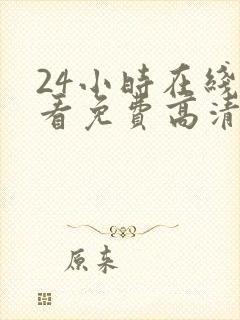 24小時在綫
看免費高清
原来